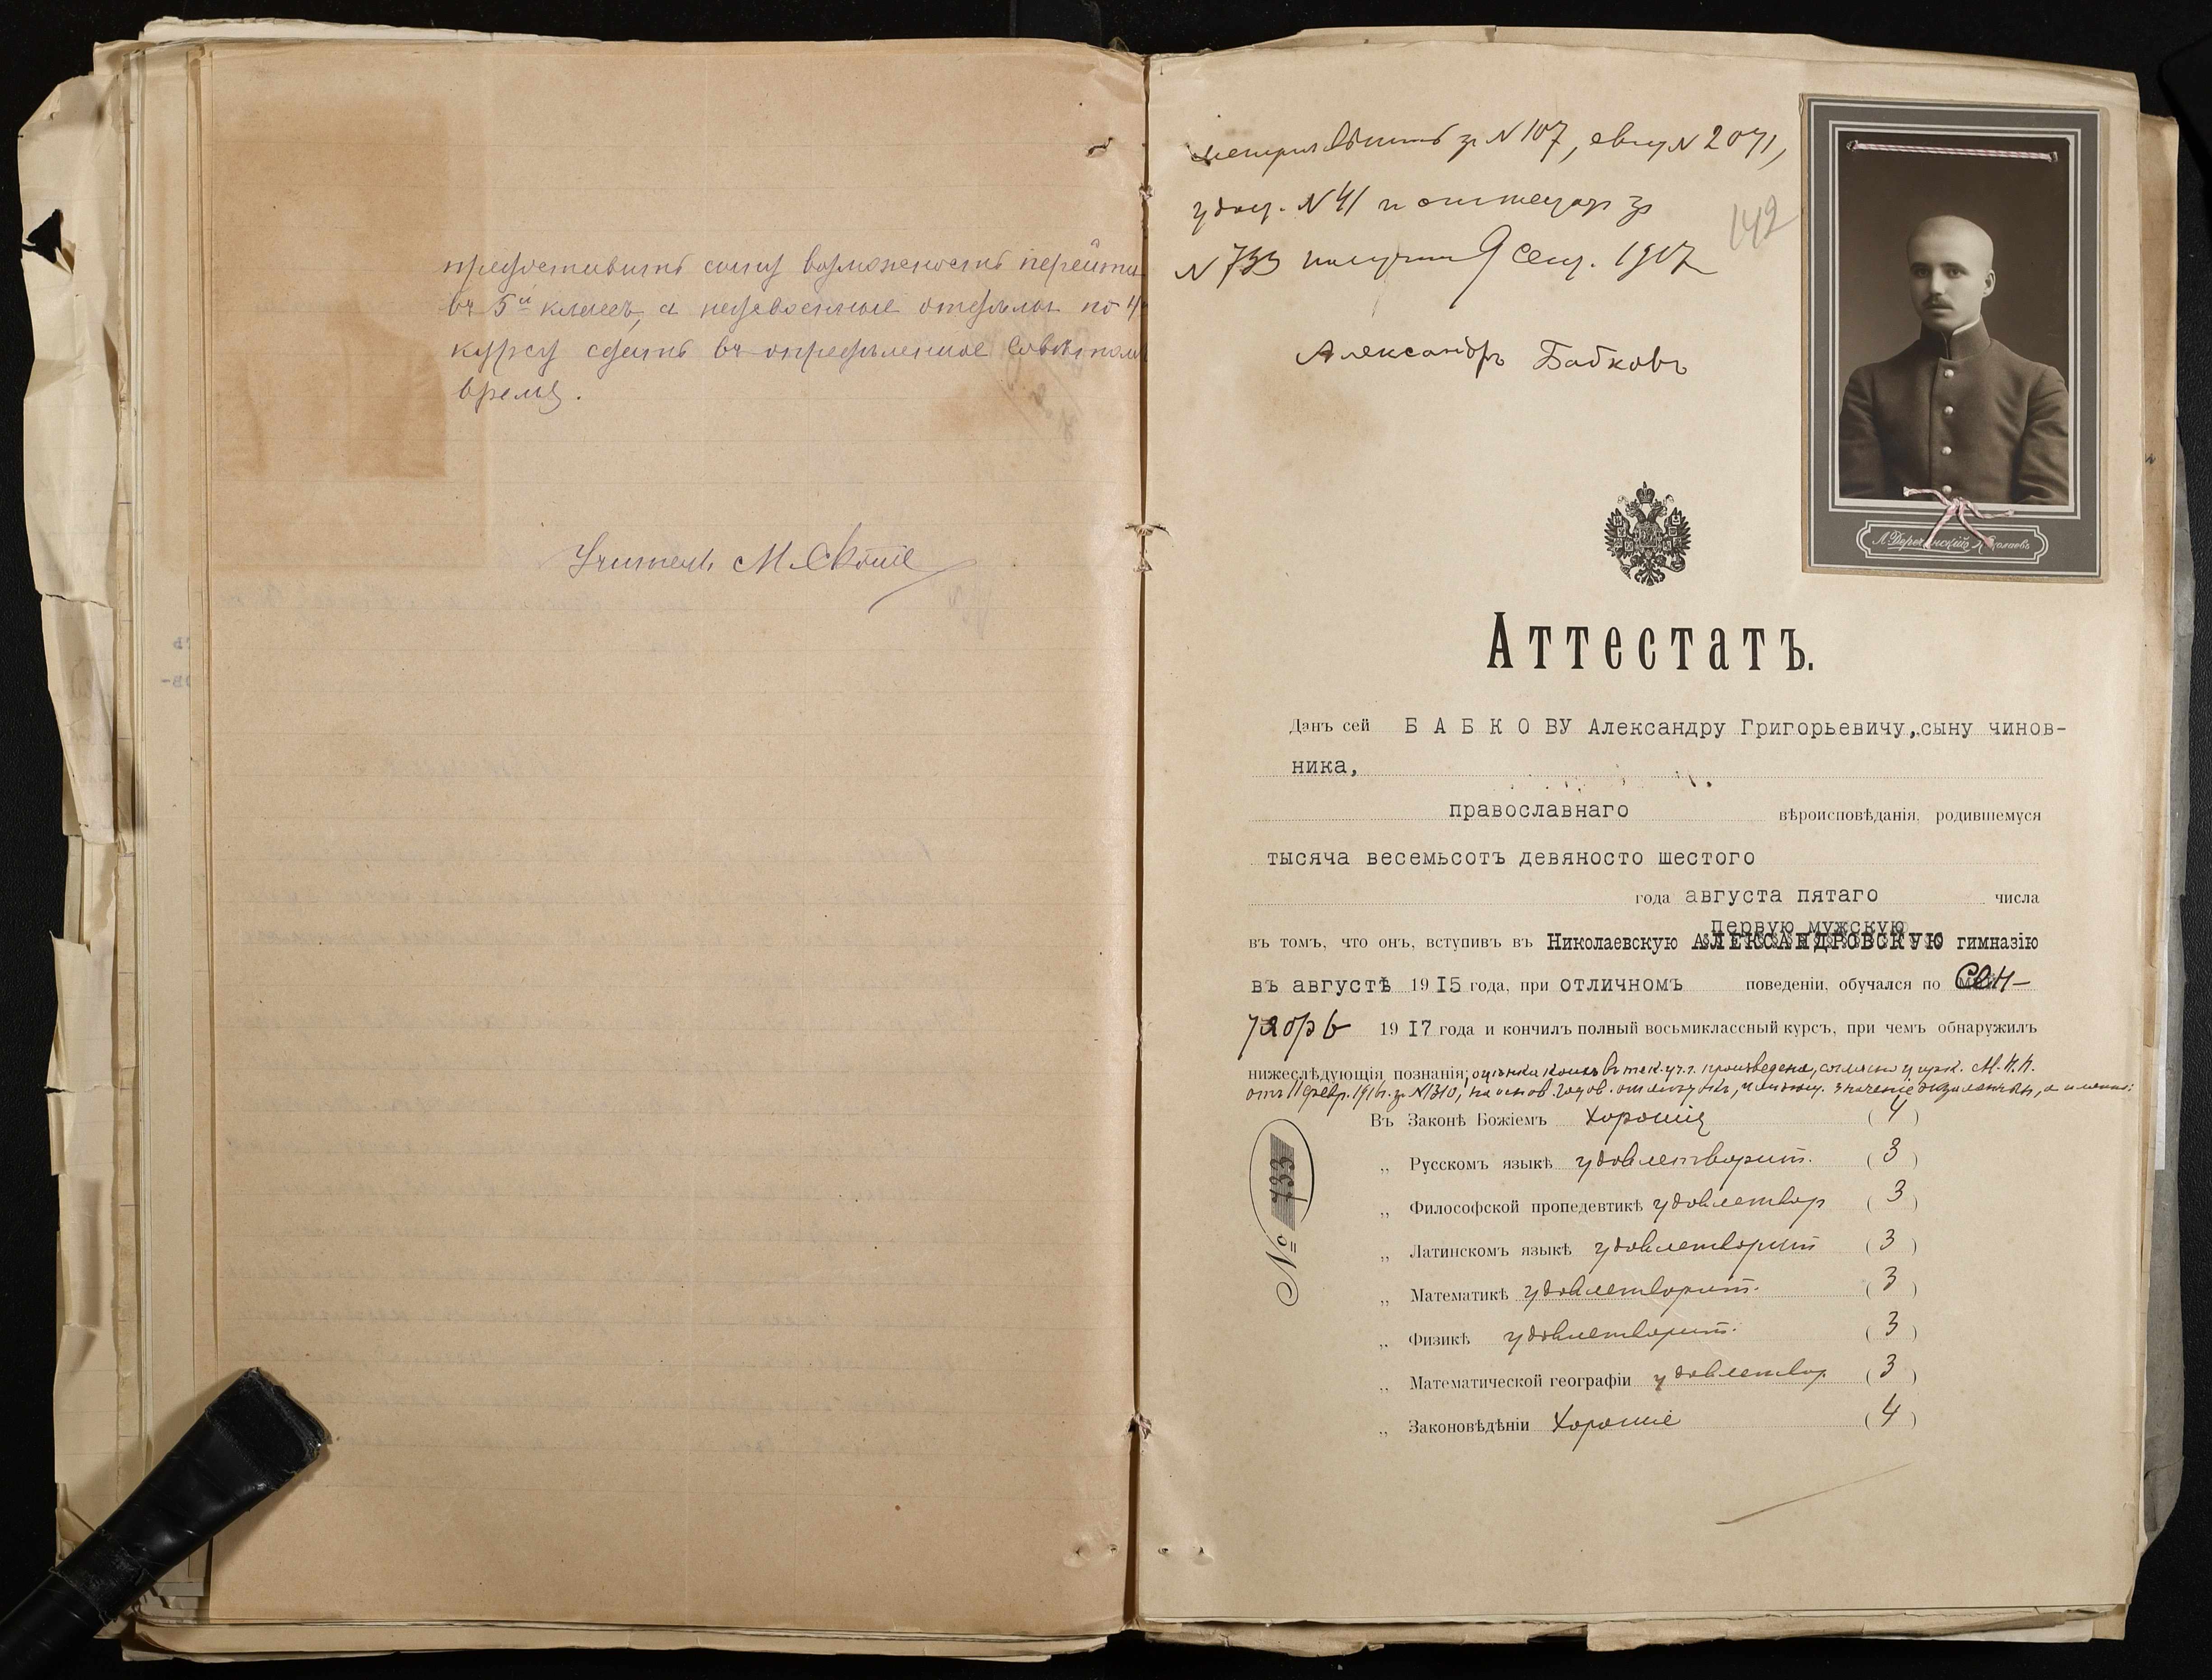 предоставить сыну возможность перейти
въ 5й классъ, а недоконченные отдѣлы по 4
курсу сдать въ опредѣленное Совѣтомъ
время.
Учитель М.
метрич. выпись за N 107, свид N 2071,
удост. N 41 и аттестатъ за
N 733 получилъ 9 Сент. 1917
142
Александръ Бабковъ
Аттестатъ.
Данъ сей Б А Б К О ВУ Александру Григорьевичу, сыну чинов-
ника,
православнаго вѣроисповѣданія, родившемуся
тысяча весемьсотъ девяносто шестого
года августа пятаго числа
первую мужскую
въ томъ, что онъ, вступивъ въ Николаевскую АЛЕКСАНДРОВСКУЮ гимназію
въ августѣ 1915 года, при отличномъ поведеніи, обучался по Сен-
тябрь 1917 года и кончилъ полный восьмиклассный курсъ, при чемъ обнаружилъ
нижеслѣдующія познанія; оцѣнка коихъ въ тек. уч. г. произведена, согласно цирк. М.Н.П.
отъ 11 февр. 1916 г. за N 1310, на основ. годов. отмѣтокъ, имѣющ. значеніе экзаменныхъ, а именно:
Въ Законѣ Божіемъ Хорошія ( 4 )
„ Русскомъ языкѣ удовлетворит. ( 3 )
„ Философской пропедевтикѣ удовлетвор ( 3 )
„ Латинскомъ языкѣ удовлетворит ( 3 )
„ Математикѣ удовлетворит. ( 3 )
„ Физикѣ удовлетворит. ( 3 )
„ Математической географіи удовлетвор ( 3 )
„ Законовѣдѣніи Хорошіе ( 4 )
№ 733